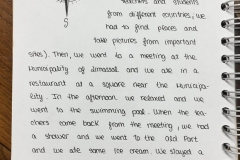 S
teachers and students
from different countries, we
had to find places and
take pictures from important
sites). Then, we went to a meeting at the
Municipality of Limassol and we ate in a
restaurant at a square near the Municipa-
lity. In the afternoon we relaxed and we
went to the swimming pool. When the tea-
chers came back from the meeting, we had
a shower and we went to the Old Port
and we ate some ice cream. We stayed a